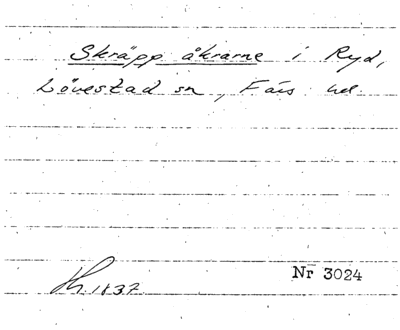 Skräpp åkrarne i Ryd,
Lövestad sn, Färs hd
Nr 3024
Th. 1837.